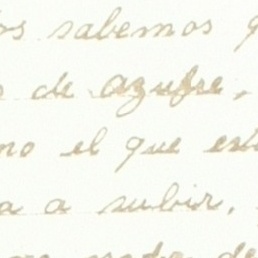 os sabemos q
de azufre,
no el que est
a a subir.